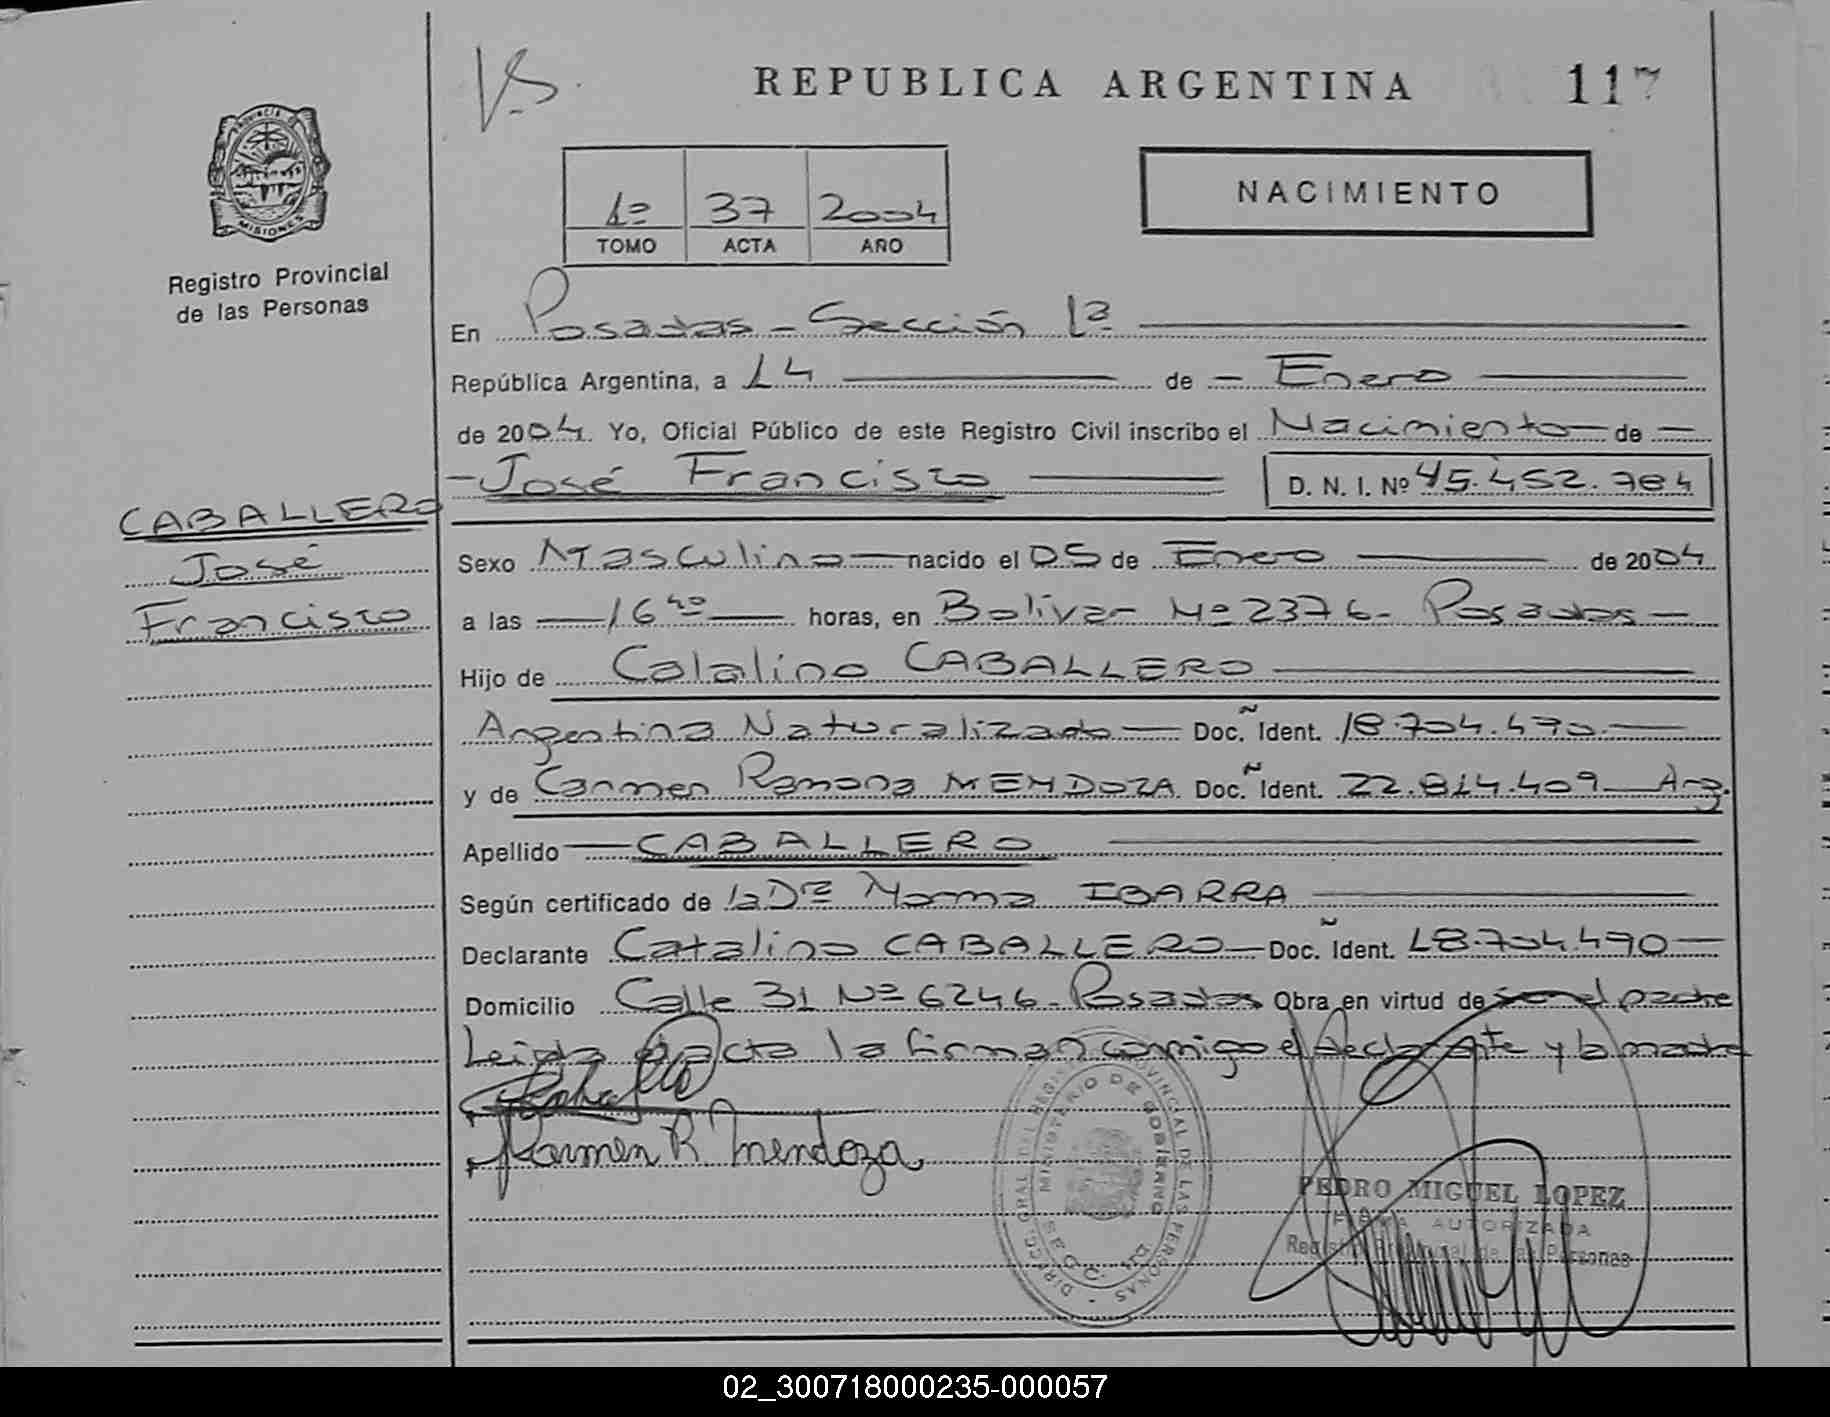 REPUBLICA ARGENTINA
117
PROVINCIA DE
MISIONES
Registro Provincial
de las Personas
1º 37 2004
TOMO ACTA AÑO
NACIMIENTO
En Posadas - Sección 1ª
República Argentina, a 14 de Enero
de 2004. Yo, Oficial Público de este Registro Civil inscribo el Nacimiento de
José Francisco D. N. I. Nº 45.452.784
CABALLERO
José
Francisco
Sexo Masculino nacido el 05 de Enero de 2004
a las 16 40 horas, en Bolívar Nº 2376 - Posadas
Hijo de Catalino CABALLERO
Argentina Naturalizado Doc. Ident. 18.704.490
y de Carmen Ramona MENDOZA Doc. Ident. 22.814.409 Arg.
Apellido CABALLERO
Según certificado de la Dra Norma IBARRA
Declarante Catalino CABALLERO Doc. Ident. 18.704.490
Domicilio Calle 31 Nº 6246 - Posadas Obra en virtud de ser el padre
Leida el acta la firman conmigo el declarante y la madre
Karmen R Mendoza
DIRECC. GRAL. DEL REGISTRO PROVINCIAL DE LAS PERSONAS
MINISTERIO DE GOBIERNO
PEDRO MIGUEL LOPEZ
FIRMA AUTORIZADA
Registro Provincial de las Personas
02_300718000235-000057